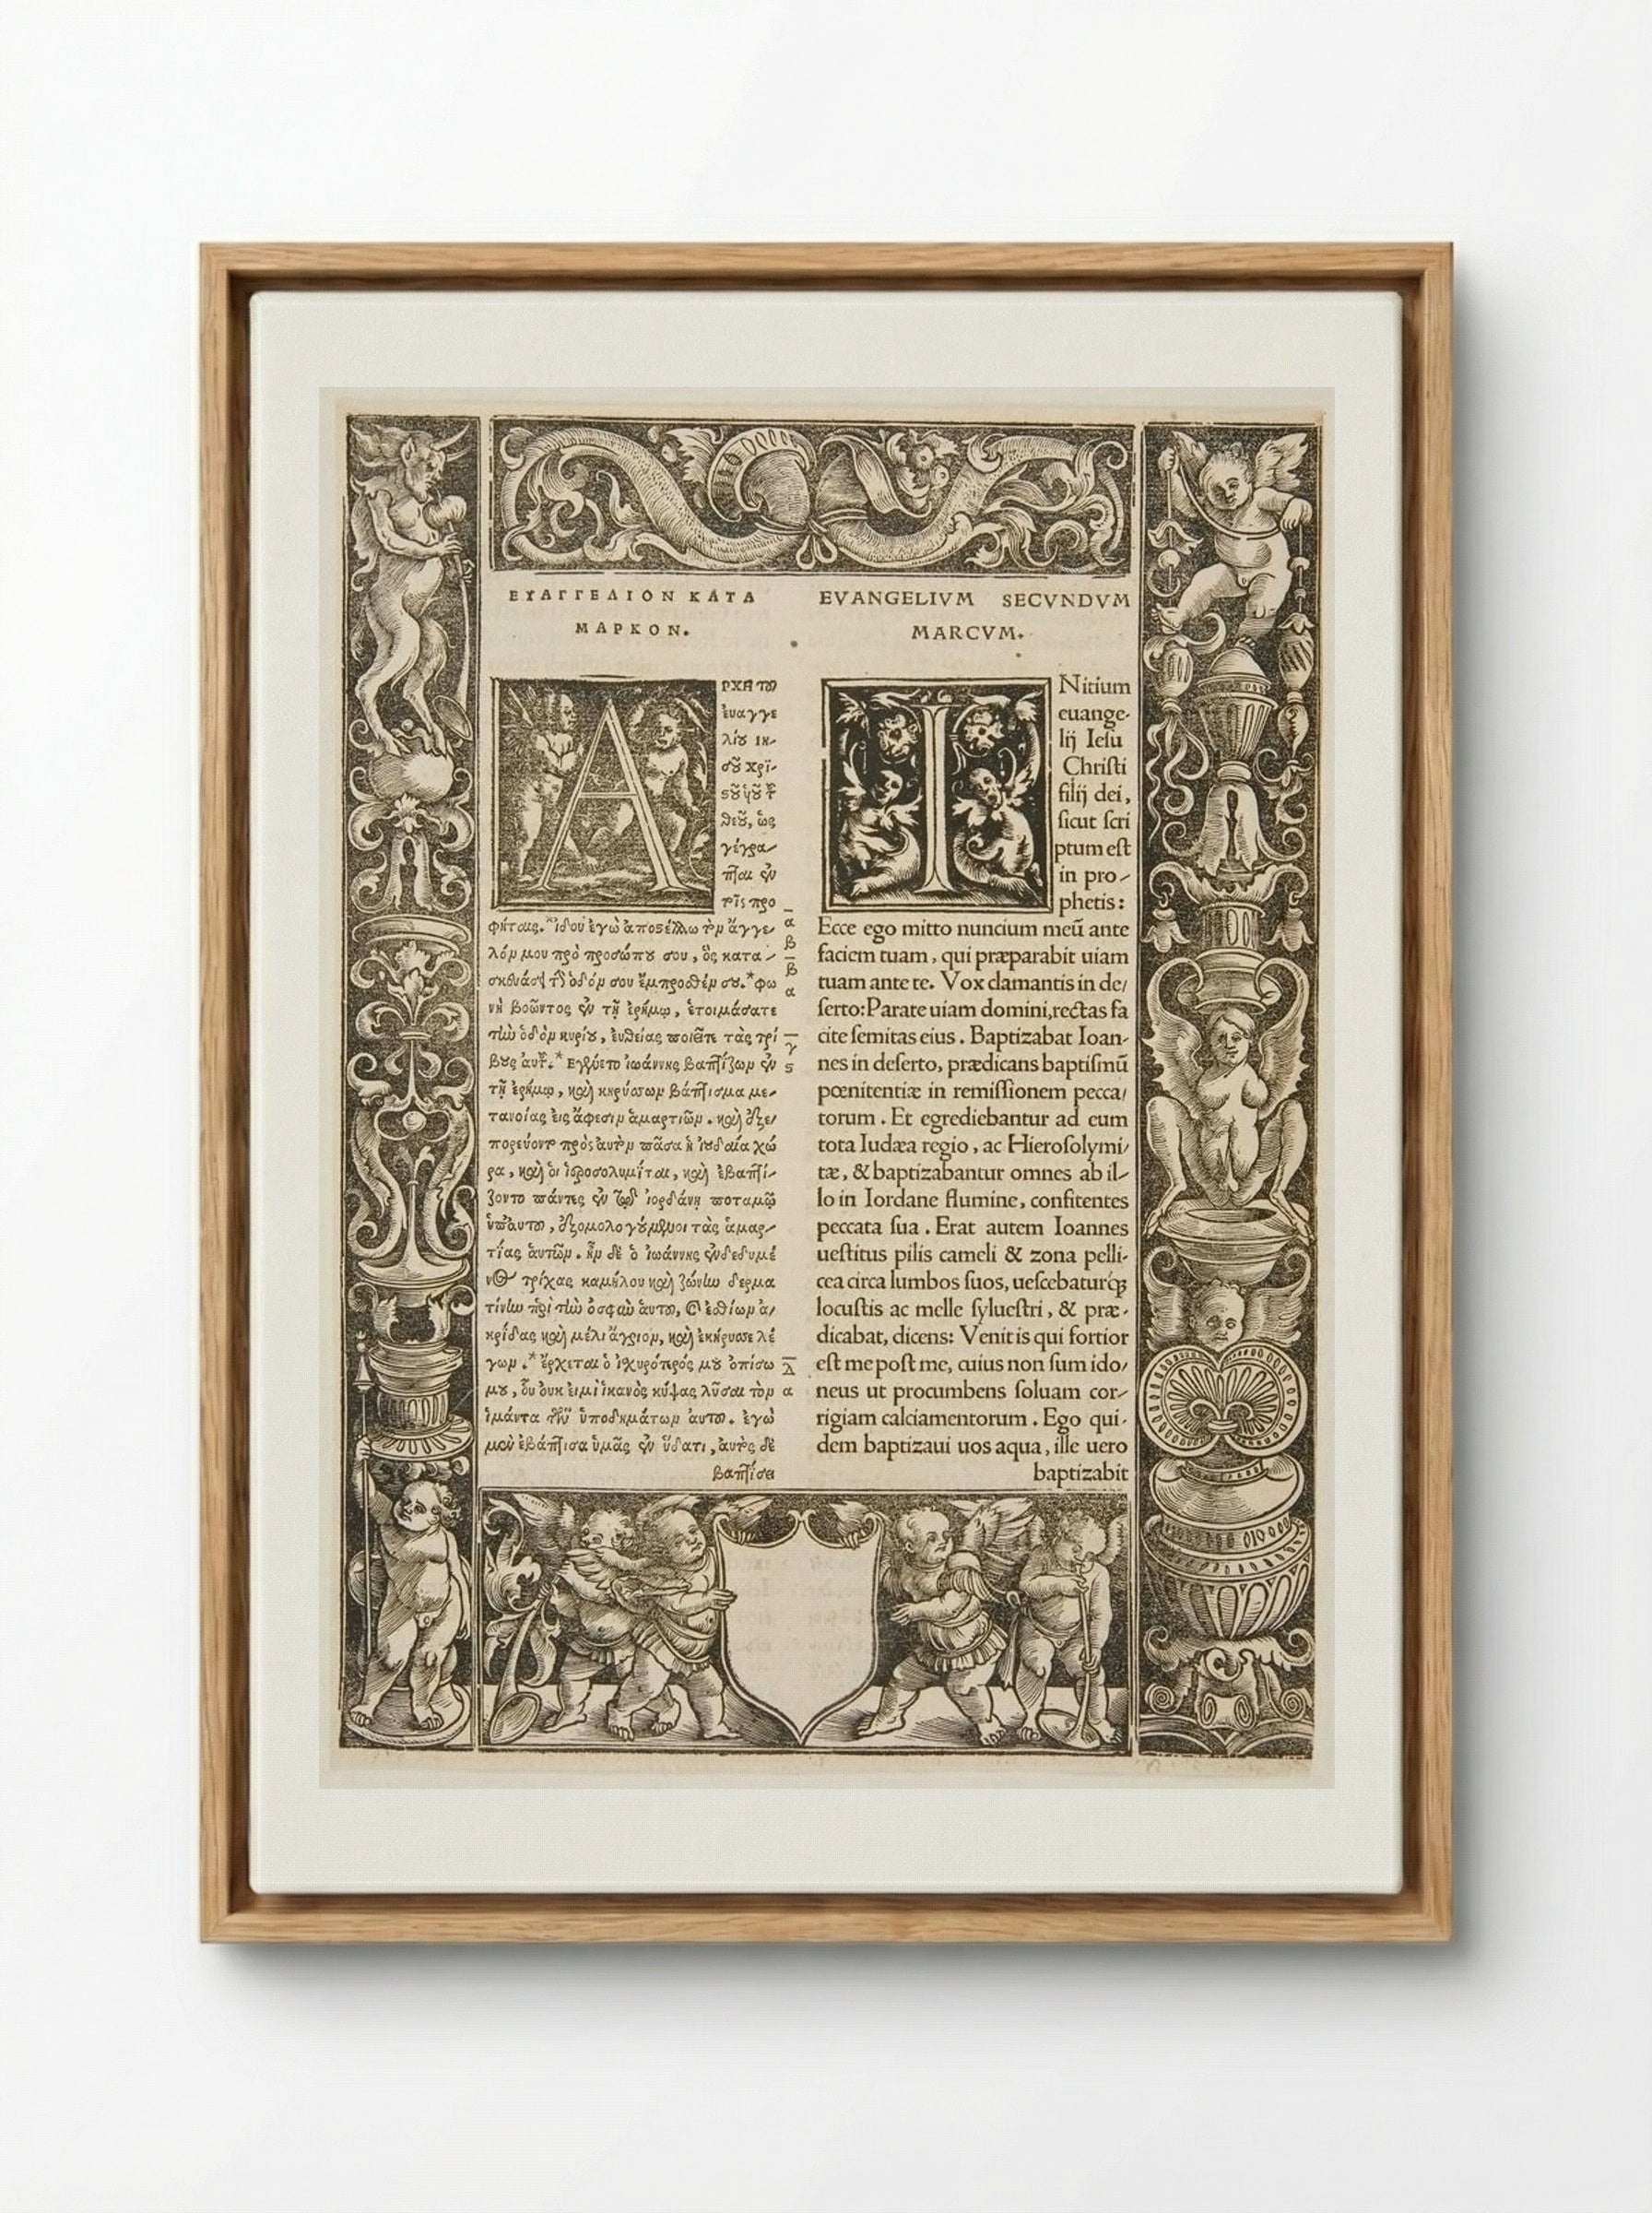 ΕΥΑΓΓΕΛΙΟΝ ΚΑΤΑ
ΜΑΡΚΟΝ.
Α
ΡΧΗ τοῦ
ἐυαγγε
λίου ιη-
σοῦ χρϊ-
στοῦ ὑοῦ τοῦ
θεοῦ, ὡς
γέγρα-
πται ἐν
τοῖς προ
φήταις.*ἰδου ἐγὼ ἀποστέλλω τὸν ἄγγε-
λόν μου πρὸ προσώπου σου, ὃς κατα-
σκευάσει τὴν ὁδόν σου ἔμπροσθέν σου.*φω
νὴ βοῶντος ἐν τῇ ἐρήμῳ, ἑτοιμάσατε
τὴν ὁδὸν κυρίου, ἐυθείας ποιεῖτε τὰς τρί
βους ἀυτοῦ.* Εγένετο ἰωάννης βαπτίζων ἐν
τῇ ἐρήμῳ, καὶ κηρύσσων βάπτισμα με-
τανοίας ἐις ἄφεσιν ἁμαρτιῶν. καὶ ἐξε-
πορεύοντο πρὸς ἀυτὸν πᾶσα ἡ ἰουδαία χώ
ρα, καὶ ὁι ἱεροσολυμίται, καὶ ἐβαπτί-
ζοντο πάντες ἐν τῷ ἰορδάνῃ ποταμῷ
ὑπ᾽ἀυτοῦ, ἐξομολογούμενοι τὰς ἁμαρ-
τίας ἁυτῶν. ἦν δὲ ὁ ἰωάννης ἐνδεδυμέ
νος τρίχας καμήλου καὶ ζώνην δερμα
τίνην περὶ τὴν ὀσφὺν ἁυτοῦ, καὶ ἐσθίων ἀ-
κρίδας καὶ μέλι ἄγριον, καὶ ἐκήρυσσε λέ
γων.*ἔρχεται ὁ ἰσχυρότερός μου ὀπίσω
μου, ὁυ ὀυκ ἐιμὶ ἱκανὸς κύψας λῦσαι τὸν
ἱμάντα τῶν ὑποδημάτων ἀυτοῦ. ἐγὼ
μεὺ ἐβάπτισα ὑμᾶς ἐν ὕδατι, ἀυτὸς δὲ
βαπτίσει
EVANGELIVM SECVNDVM
MARCVM.
I
Nitium
euange-
lij Iesu
Christi
filij dei,
sicut scri
ptum est
in pro-
phetis:
Ecce ego mitto nuncium meū ante
faciem tuam, qui præparabit uiam
tuam ante te. Vox clamantis in de/
serto: Parate uiam domini, rectas fa
cite semitas eius. Baptizabat Ioan-
nes in deserto, prædicans baptismū
pœnitentiæ in remissionem pecca/
torum. Et egrediebantur ad eum
tota Iudæa regio, ac Hierosolymi/
tæ, & baptizabantur omnes ab il-
lo in Iordane flumine, confitentes
peccata sua. Erat autem Ioannes
uestitus pilis cameli & zona pelli-
cea circa lumbos suos, uescebaturq;
locustis ac melle syluestri, & præ-
dicabat, dicens: Venit is qui fortior
est me post me, cuius non sum ido/
neus ut procumbens soluam cor-
rigiam calciamentorum. Ego qui-
dem baptizaui uos aqua, ille uero
baptizabit